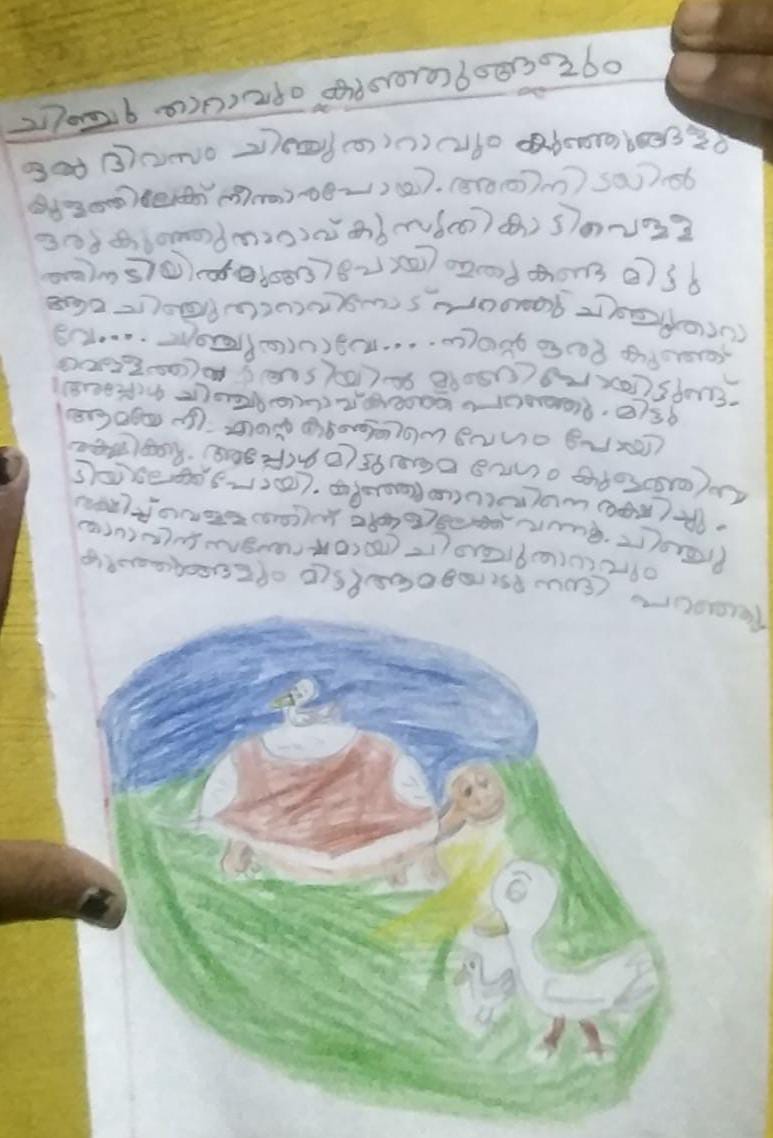 ചിഞ്ചു താറാവും കുഞ്ഞുങ്ങളും
ഒരു ദിവസം ചിഞ്ചുതാറാവും കുഞ്ഞുങ്ങളും
കുളത്തിലേക്ക് നീന്താൻപോയി. അതിനിടയിൽ
ഒരു കുഞ്ഞുതാറാവ് കുസൃതി കാട്ടിവെള്ള
ത്തിനടിയിൽ മുങ്ങിപോയി ഇതുകണ്ട മിട്ടു
ആമ ചിഞ്ചുതാറാവിനോട് പറഞ്ഞു ചിഞ്ചുതാറാ
വേ.... ചിഞ്ചുതാറാവേ.... നിന്റെ ഒരു കുഞ്ഞ്
വെള്ളത്തിന്റെ അടിയിൽ മുങ്ങിപോയിട്ടുണ്ട്.
അപ്പോൾ ചിഞ്ചുതാറാവ് പറഞ്ഞു. മിട്ടു
ആമയേ നീ എന്റെ കുഞ്ഞിനെ വേഗം പോയി
രക്ഷിക്കു. അപ്പോൾ മിട്ടുആമ വേഗം കുളത്തിന
ടിയിലേക്ക് പോയി. കുഞ്ഞുതാറാവിനെ രക്ഷിച്ചു.
രക്ഷിച്ച് വെള്ളത്തിന് മുകളിലേക്ക് വന്നു. ചിഞ്ചു
താറാവിന് സന്തോഷമായി ചിഞ്ചുതാറാവും
കുഞ്ഞുങ്ങളും മിട്ടുആമയോടു നന്ദി പറഞ്ഞു.